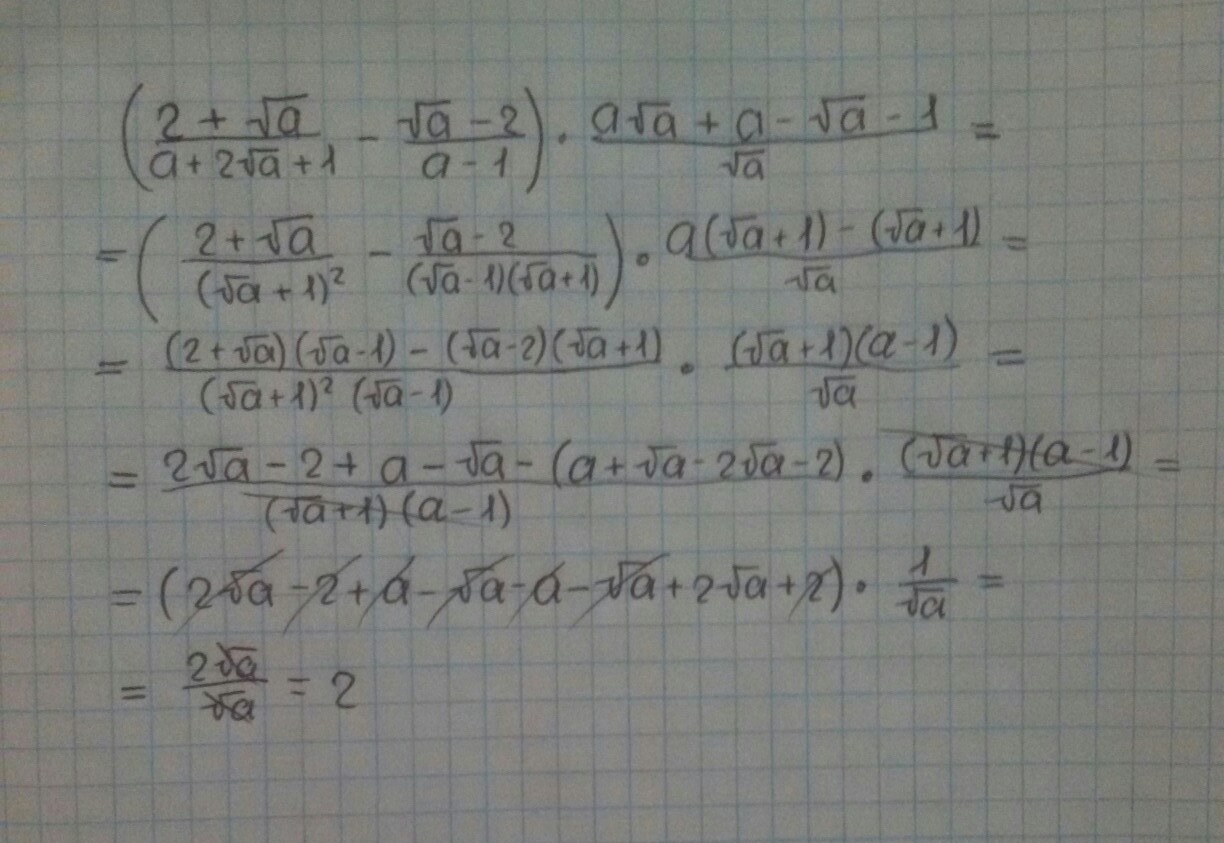 (2 + √a / a + 2√a + 1 − √a − 2 / a − 1) · a√a + a − √a − 1 / √a =
= (2 + √a / (√a + 1)² − √a − 2 / (√a − 1)(√a + 1)) · a(√a + 1) − (√a + 1) / √a =
= (2 + √a)(√a − 1) − (√a − 2)(√a + 1) / (√a + 1)² (√a − 1) · (√a + 1)(a − 1) / √a =
= 2√a − 2 + a − √a − (a + √a − 2√a − 2) / (√a + 1)(a − 1) · (√a + 1)(a − 1) / √a =
= (2√a − 2 + a − √a − a − √a + 2√a + 2) · 1 / √a =
= 2√a / √a = 2